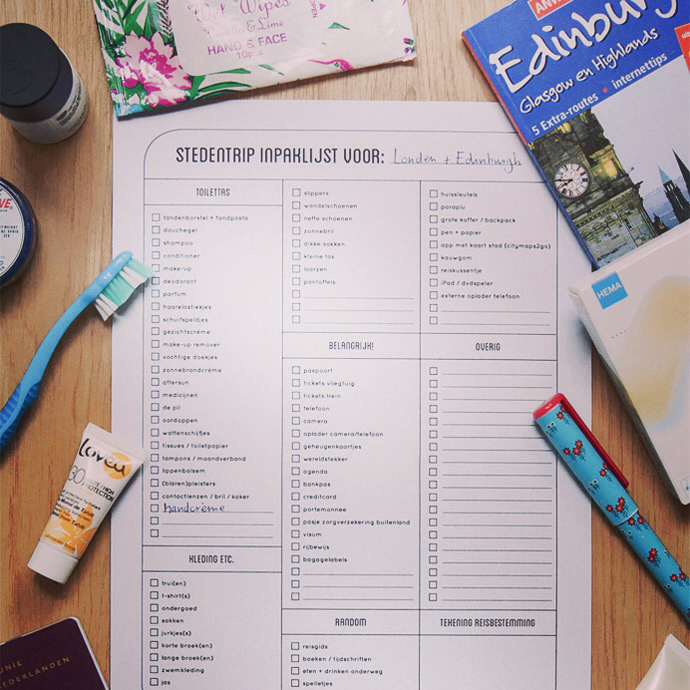 Wet Wipes
& Lime
HAND & FACE
10pcs
OPEN
ANW
Edinburg
Glasgow en Highlands
5 Extra-routes • internettips
STEDENTRIP INPAKLIJST VOOR: Londen + Edinburgh
TOILETTAS
tandenborstel + tandpasta
douchegel
shampoo
conditioner
make-up
deodorant
parfum
haarelastiekjes
schuifspeldjes
gezichtscrème
make-up remover
vochtige doekjes
zonnebrandcrème
aftersun
medicijnen
de pil
oordoppen
wattenschijfjes
tissues / toiletpapier
tampons / maandverband
lippenbalsem
(blaren)pleisters
contactlenzen / bril / koker
handcrème
KLEDING ETC.
trui(en)
t-shirt(s)
ondergoed
sokken
jurkje(s)
korte broek(en)
lange broek(en)
zwemkleding
jas
slippers
wandelschoenen
nette schoenen
zonnebril
dikke sokken
kleine tas
laarzen
pantoffels
BELANGRIJK!
paspoort
tickets vliegtuig
tickets trein
telefoon
camera
oplader camera/telefoon
geheugenkaartjes
wereldstekker
agenda
bankpas
creditcard
portemonnee
pasje zorgverzekering buitenland
visum
rijbewijs
bagagelabels
RANDOM
reisgids
boeken / tijdschriften
eten + drinken onderweg
spelletjes
huissleutels
paraplu
grote koffer / backpack
pen + papier
app met kaart stad (citymaps2go)
kauwgom
reiskussentje
iPad / dvdspeler
externe oplader telefoon
OVERIG
TEKENING REISBESTEMMING
HEMA
lovea
30
UNIE
NEDERLANDEN